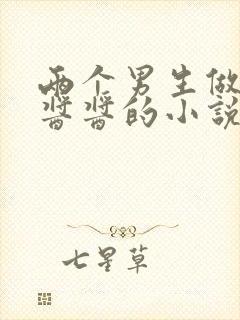 两个男生做
酱酱的小說
七星草